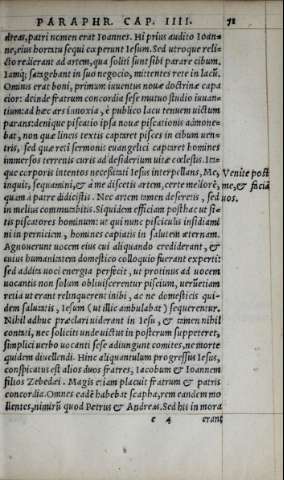 PARAPHR. CAP. IIII. 78
dreas, patri nomen erat Ioannes. Hi prius audito Ioan=
ne, eius hortatu sequi cœperunt Iesum. Sed utroque reli=
cto redierant ad artem, qua soliti sunt sibi parare cibum.
Iamq; satagebant in suo negocio, mittentes rete in lacũ.
Ominis erat boni, primum iuuentus nouæ doctrinæ capa
cior: deinde fratrum concordia sese mutuo studio iuuan=
tium: ad hæc ars innoxia, è publico lacu tenuem uictum
parans: denique piscatio ipsa notæ piscationis admone=
bat, non quæ lineis textis captaret pisces in cibum uen=
tris, sed quæ reti sermonis euangelici captaret homines
immersos terrenis curis ad desiderium uitæ cœlestis. Ita=
que corporis intentos necessitati Iesus interpellans, Me,
inquit, sequamini, & à me discetis artem, certe meliorẽ,
quam à patre didicistis. Nec artem tamen deseretis, sed
in melius commutabitis. Siquidem efficiam posthac ut si=
tis piscatores hominum: ut qui nunc pisciculis insidiami
ni in perniciem, homines capiatis in salutem æternam.
Agnouerunt uocem eius cui aliquando crediderant, &
cuius humanitatem domestico colloquio fuerant experti:
sed addita uoci energia perfecit, ut protinus ad uocem
uocantis non solum obliuiscerentur piscium, uerùetiam
retia ut erant relinquerent inibi, ac ne domesticis qui=
dem salutatis, Iesum (ut illic ambulabat) sequerentur.
Nihil adhuc præclari uiderant in Iesu, & tamen nihil
contati, nec soliciti unde uictus in posterum suppeteret,
simplici uerbo uocanti sese adiungunt comites, ne morte
quidem diuellendi. Hinc aliquantulum progressus Iesus,
conspicatus est alios duos fratres, Iacobum & Ioannem
filios Zebedæi. Magis etiam placuit fratrum & patris
concordia. Omnes eadẽ habebat scapha, rem eandem mo
lientes, nimirũ quod Petrus & Andreas. Sed hii in mora
e 4 erant
Venite post
me, & faciã
uos.